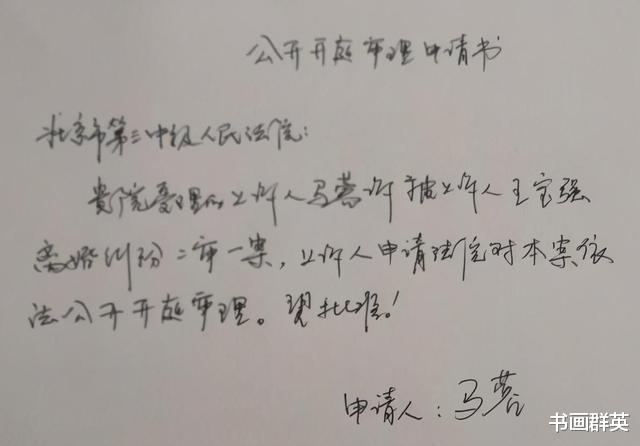 公开开庭审理申请书
北京市第三中级人民法院：
贵院受理的上诉人马蓉诉被上诉人王宝强
离婚纠纷二审一案，上诉人申请法院对本案依
法公开开庭审理。望批准！
申请人：马蓉
书画群英